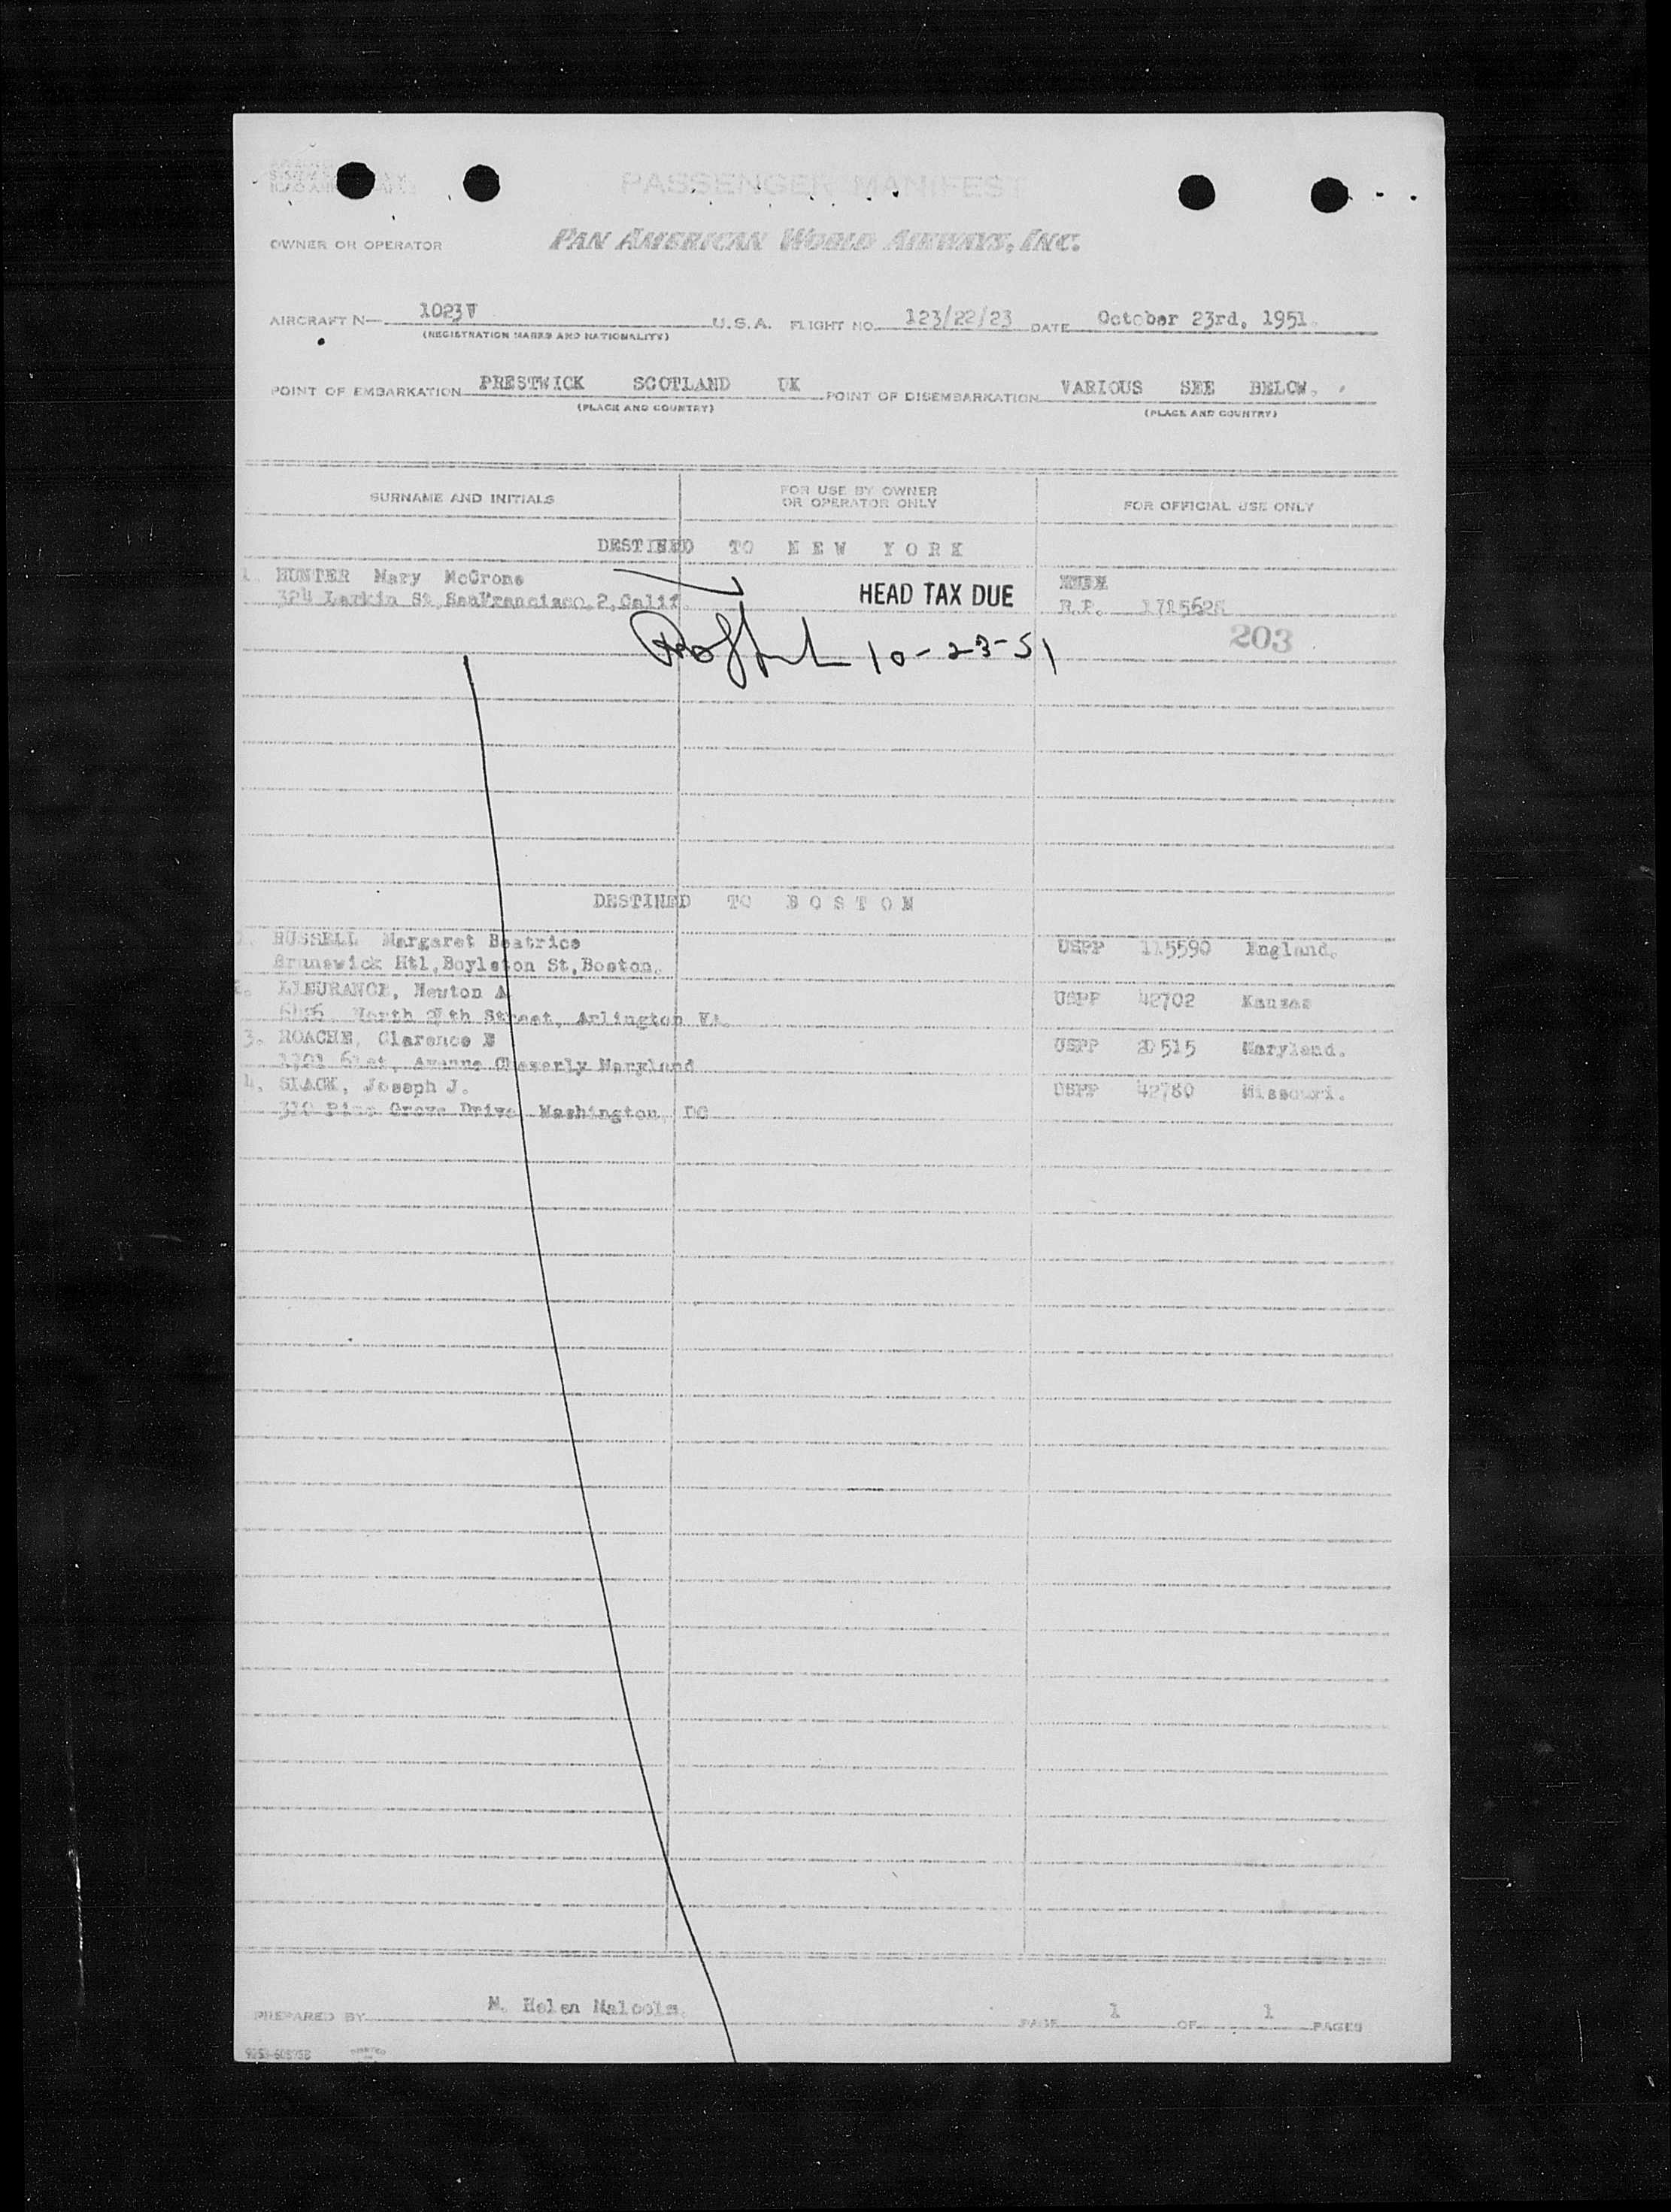 PASSENGER MANIFEST
OWNER OR OPERATOR PAN AMERICAN WORLD AIRWAYS, INC.
AIRCRAFT N— 1023V U.S.A. FLIGHT NO. 123/22/23 DATE October 23rd, 1951.
(REGISTRATION MARKS AND NATIONALITY)
POINT OF EMBARKATION PRESTWICK SCOTLAND UK POINT OF DISEMBARKATION VARIOUS SEE BELOW.
(PLACE AND COUNTRY) (PLACE AND COUNTRY)
SURNAME AND INITIALS FOR USE BY OWNER OR OPERATOR ONLY FOR OFFICIAL USE ONLY
DESTINED TO NEW YORK
1. HUNTER Mary McCrone
324 Larkin St, SanFrancisco, 2, Calif. HEAD TAX DUE R.P. 1715628
203
10-23-51
DESTINED TO BOSTON
RUSSELL Margaret Beatrice USPP 115590 England.
Brunswick Htl, Boylston St, Boston.
LIEURANCE, Newton A USPP 42702 Kansas
North Street, Arlington Va.
3. ROACHE, Clarence E USPP 20515 Maryland.
61st, Avenue Cheverly Maryland
4. SLACK, Joseph J. USPP 42780 Missouri.
Pine Grove Drive Washington, DC
PREPARED BY M. Helen Malcolm. PAGE 1 OF 1 PAGES